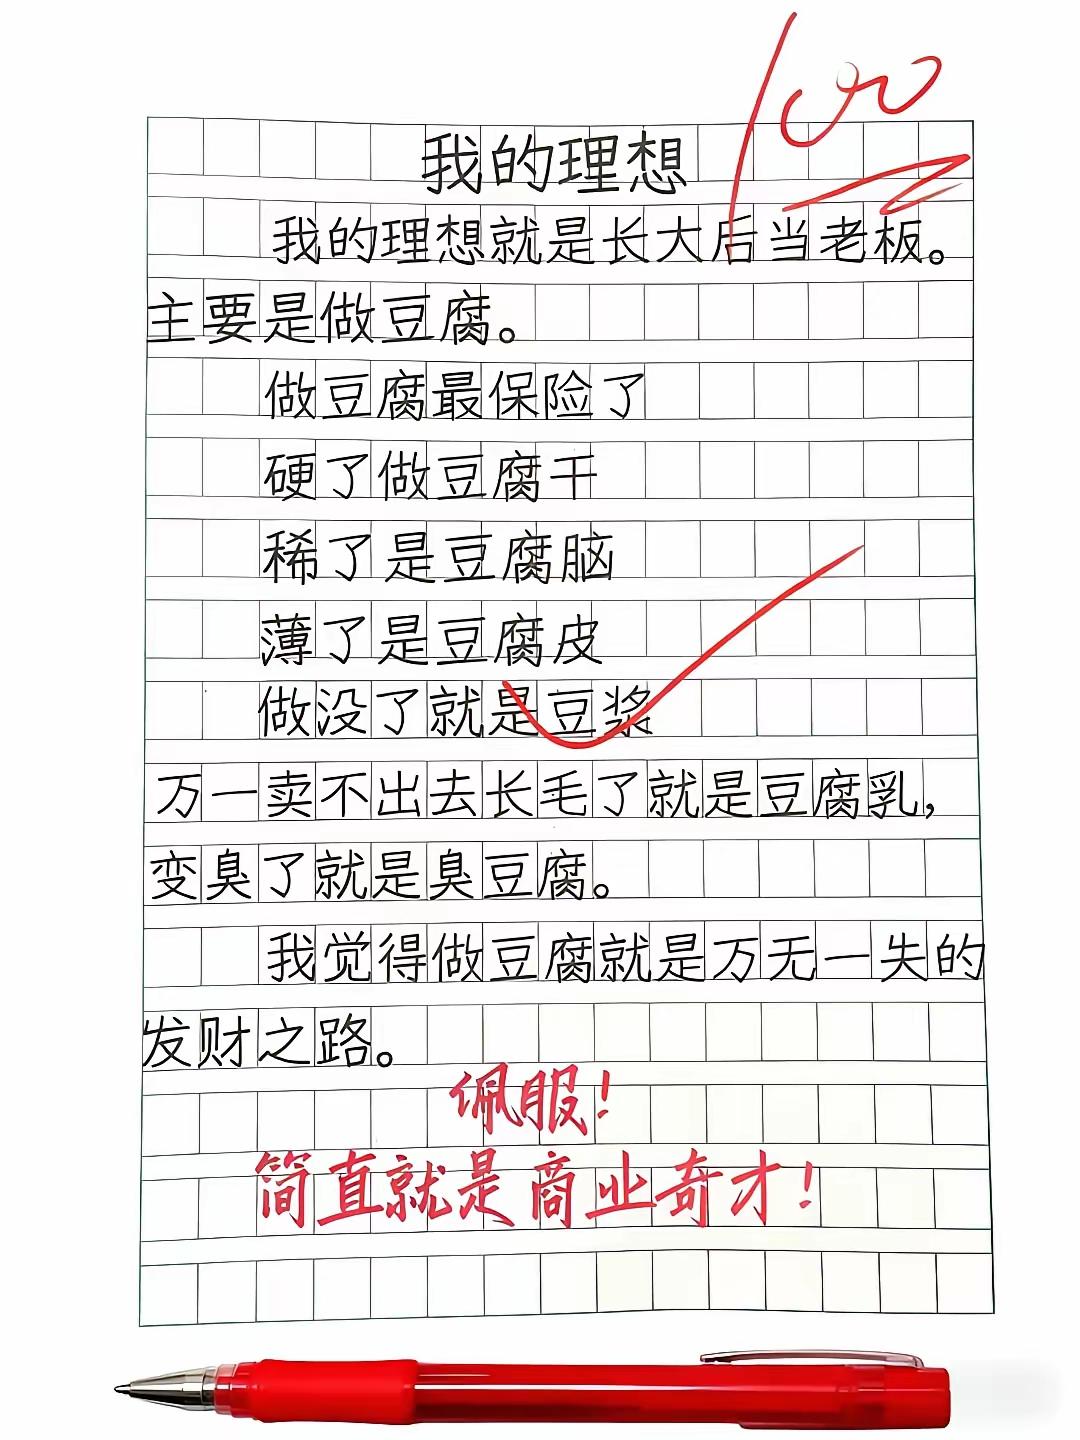 100
我的理想
我的理想就是长大后当老板。
主要是做豆腐。
做豆腐最保险了
硬了做豆腐干
稀了是豆腐脑
薄了是豆腐皮
做没了就是豆浆
万一卖不出去长毛了就是豆腐乳，
变臭了就是臭豆腐。
我觉得做豆腐就是万无一失的
发财之路。
佩服！
简直就是商业奇才！